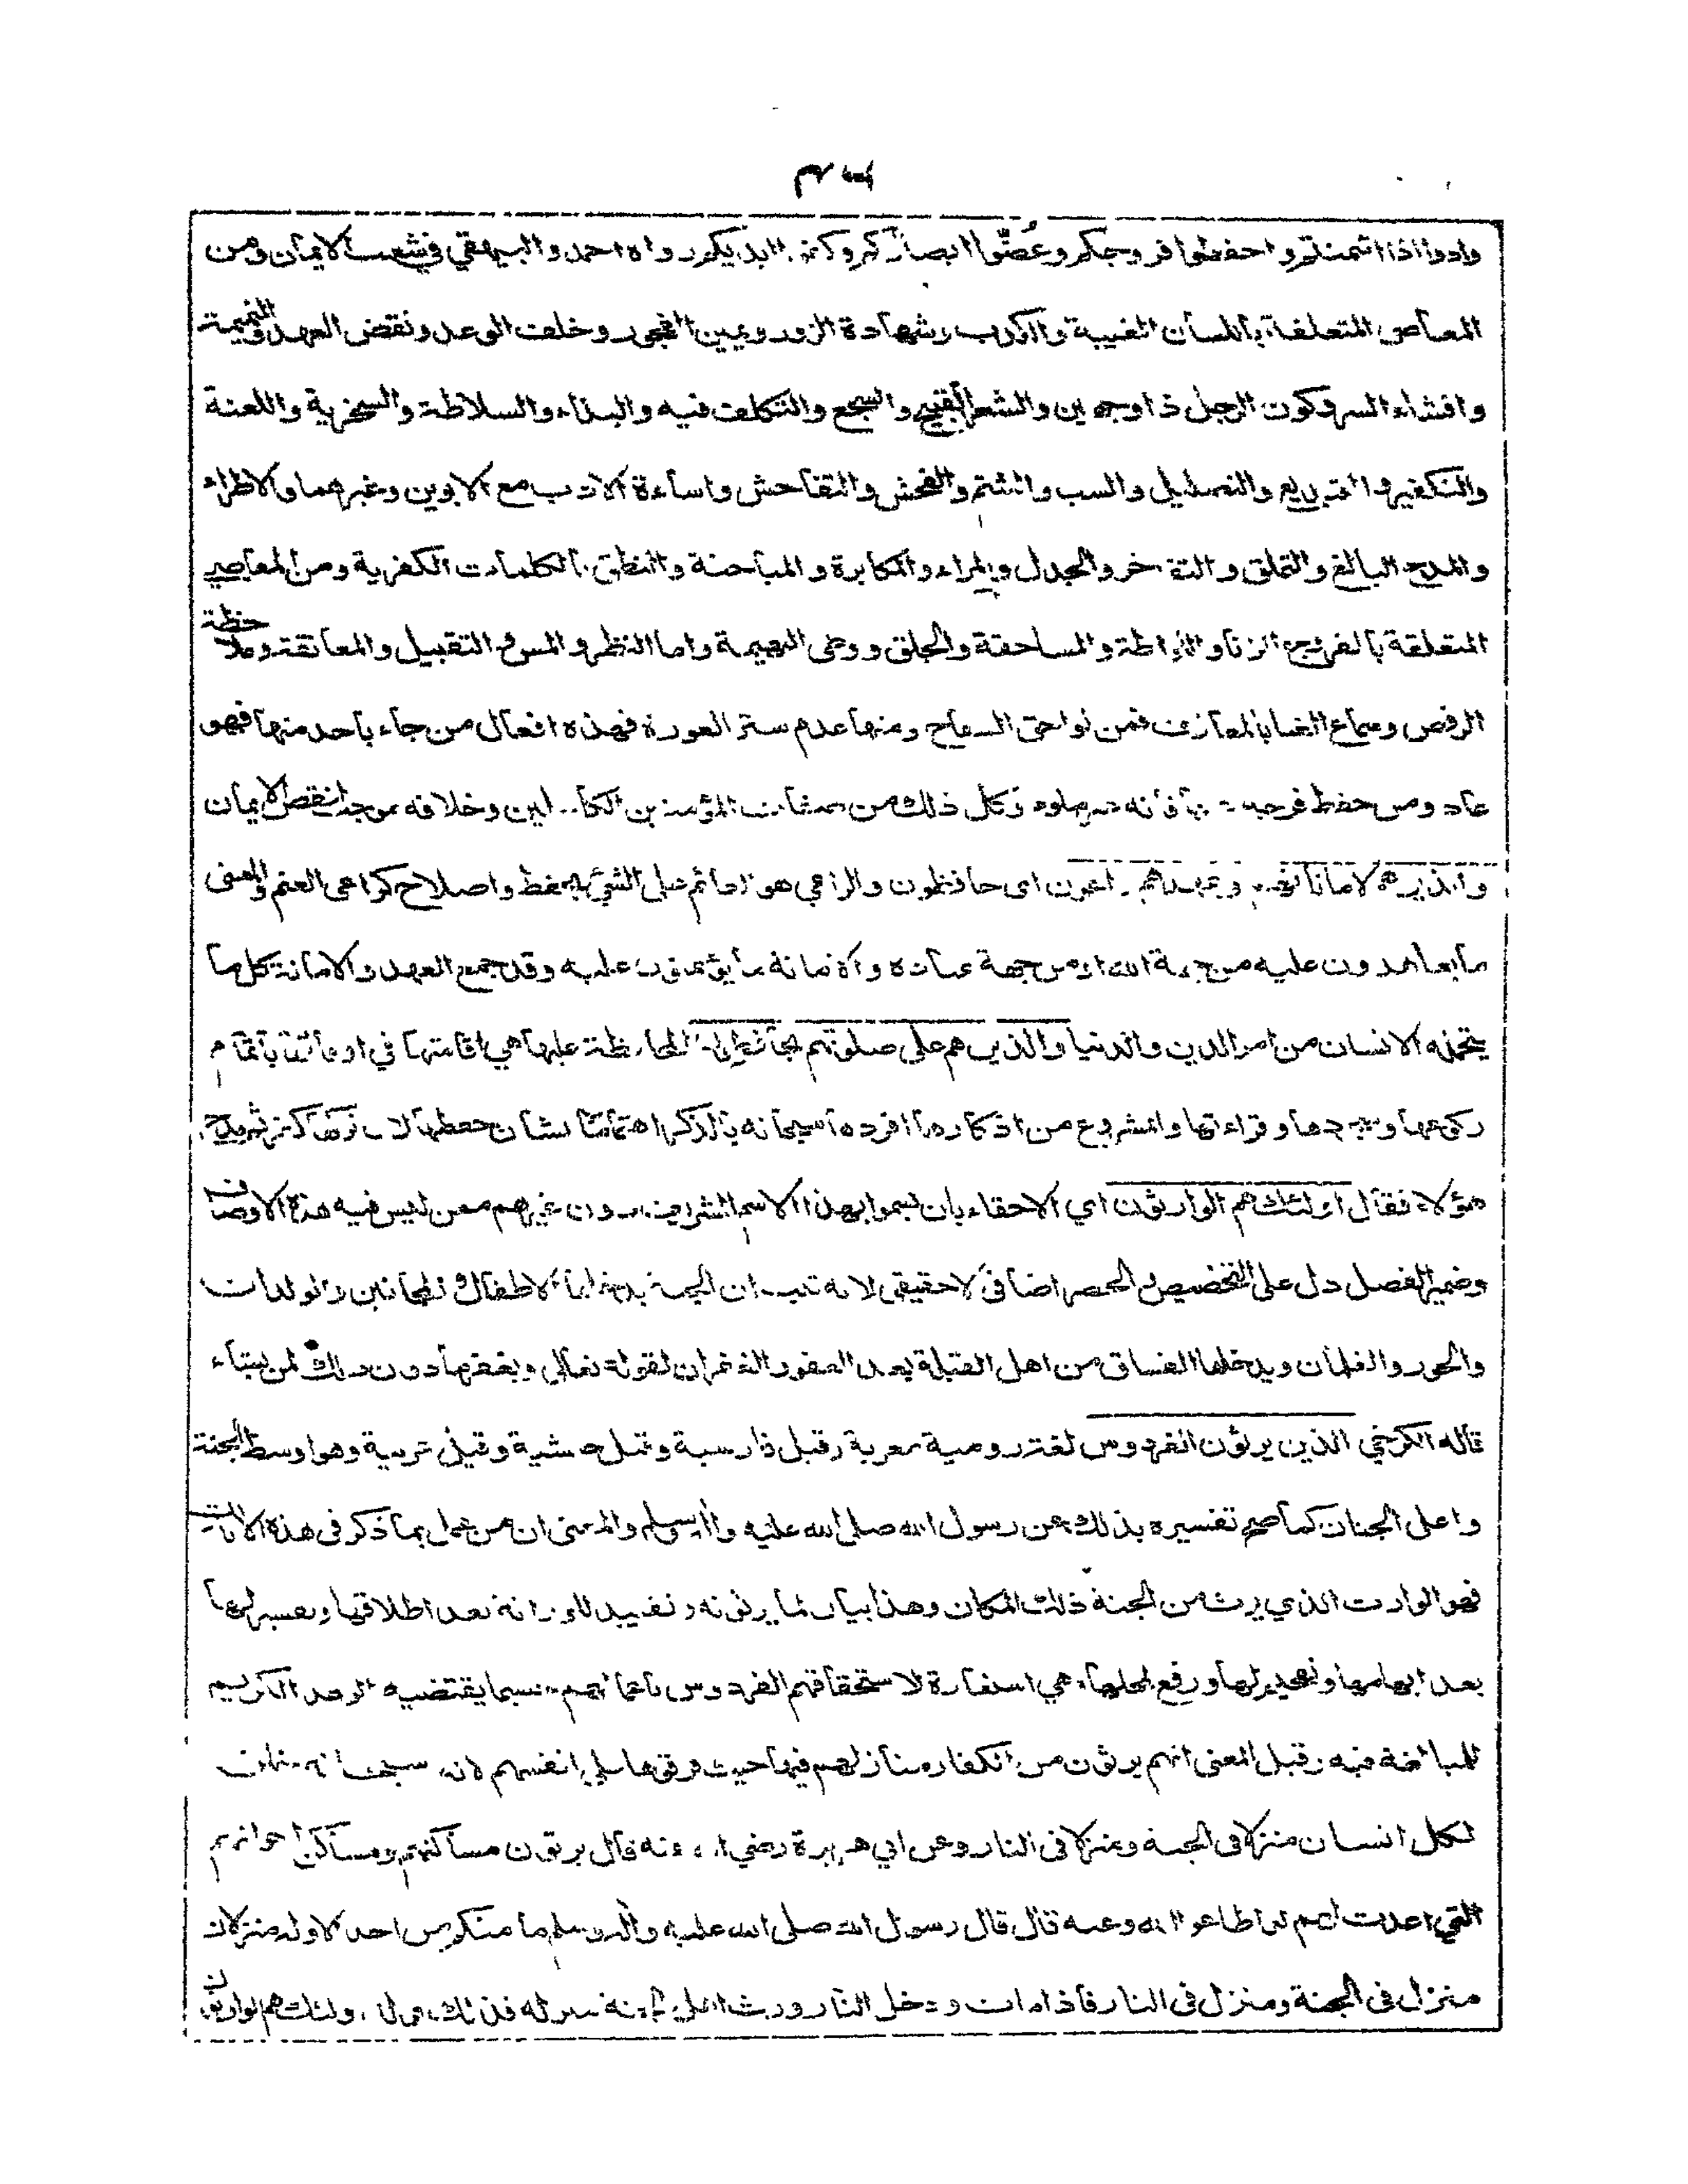 وادوا اذا ائتمنتم واحفظوا فروجكم وغضّوا ابصاركم وكفوا ايديكم رواه احمد والبيهقي في شعب الايمان ومن
المعاصي المتعلقة باللسان الغيبة والكذب وشهادة الزور ويمين الفجور وخلف الوعد ونقض العهد والنميمة
وافشاء السر وكون الرجل ذا وجهين والشعر القبيح والسجع والتكلف فيه والبذاء والسلاطة والسخرية واللعنة
والتكفير والتبديع والتضليل والسب والشتم والفحش والتفاحش واساءة الادب مع الابوين وغيرهما والاطراء
والمدح البالغ والتملق والتفاخر والجدل والمراء والمكابرة والمباحثة والنطق بالكلمات الكفرية ومن المعاصي
المتعلقة بالفرج الزنا واللواطة والمساحقة والجلق ووطى البهيمة واما النظر والمس والتقبيل والمعانقة وملاحظة
الرقص وسماع الغناء بالمعازف فمن لواحق السفاح ومنها عدم ستر العورة فهذه افعال من جاء باحد منها فهو
عاد ومن حفظ فرجه وكل ذلك من صفات المؤمنين الكاملين وخلافه موجب نقص الايمان
والذين هم لاماناتهم وعهدهم راعون اى حافظون والراعي هو القائم على الشيء بحفظ واصلاح كراعي الغنم والمعنى
ما يعاهدون عليه من جهة الله او من جهة عباده والامانة ما يؤتمنون عليه وقد جمع العهد والامانة كل ما
يتحمله الانسان من امر الدين والدنيا والذين هم على صلوتهم يحافظون المحافظة عليها هي اقامتها في اوقاتها باتمام
ركوعها وسجودها وقراءتها والمشروع من اذكارها افردها سبحانه بالذكر اهتماما بشان حفظها ثم مدح
هؤلاء فقال اولئك هم الوارثون اي الاحقاء بان يسموا بهذا الاسم الشريف دون غيرهم ممن ليس فيه هذه الاوصاف
وضمير الفصل دل على التخصيص والحصر اضافى لا حقيقي لانه ثبت ان الجنة يدخلها الاطفال والمجانين والولدان
والحور والغلمان ويدخلها الفساق من اهل القبلة بعد العفو والغفران لقوله تعالى ويغفر ما دون ذلك لمن يشاء
قاله الكرخي الذين يرثون الفردوس لغة رومية معربة وقيل فارسية وقيل حبشية وقيل عربية وهو اوسط الجنة
واعلى الجنان كما صح تفسيره بذلك عن رسول الله صلى الله عليه واله وسلم والمعنى ان من عمل بما ذكر في هذه الايات
فهو الوارث الذي يرث من الجنة ذلك المكان وهذا بيان لما يرثونه وتقييد للوراثة بعد اطلاقها وتفسير لها
بعد ابهامها وتفخيم لها ورفع لمحلها هي استعارة لاستحقاقهم الفردوس باعمالهم حسبما يقتضيه الوعد الكريم
للمبالغة فيه وقيل المعنى انهم يرثون من الكفار منازلهم فيها حيث فرقوها على انفسهم لانه سبحانه خلق
لكل انسان منزلا في الجنة ومنزلا في النار وعن ابي هريرة رضي الله عنه قال يرثون مساكنهم ومساكن اخوانهم
التي اعدت لهم لو اطاعوا الله وعنه قال قال رسول الله صلى الله عليه واله وسلم ما منكم من احد الا وله منزلان
منزل في الجنة ومنزل في النار فاذا مات ودخل النار ورث اهل الجنة منزله فذلك قوله اولئك هم الوارثون